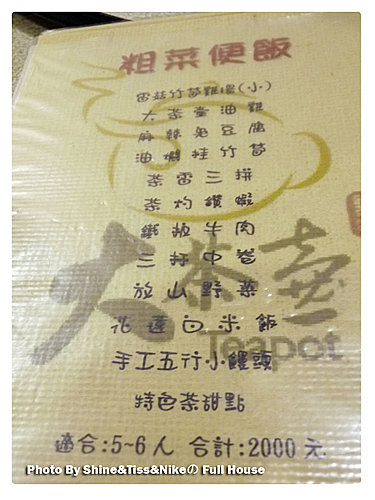 粗菜便飯
雷菇竹笋雞湯(小)
大茶壺油雞
麻辣兔豆腐
油燜桂竹筍
茶雷三拼
茶灼鑽蝦
鐵板牛肉
三杯中卷
放山野菜
花蓮白米飯
手工五行小饅頭
特色茶甜點
適合:5~6人 合計:2000元
大茶壺
Teapot
Photo By Shine&Tiss&Nikeの Full House